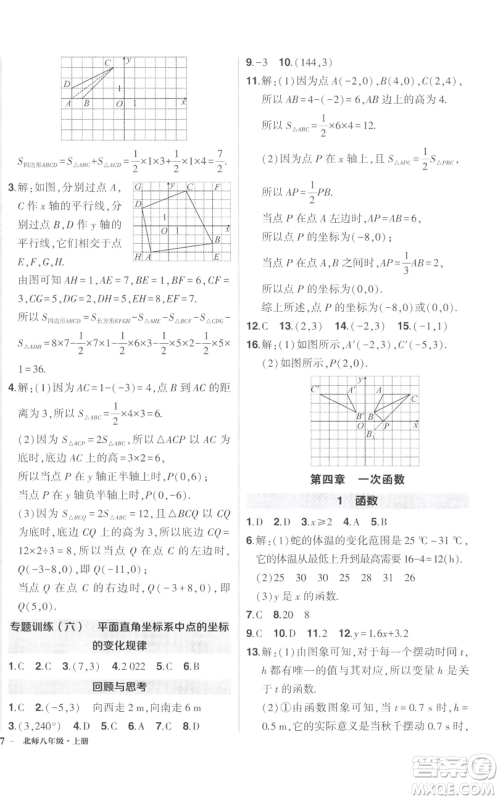 C
D
A
B
O
1
1
x
S四边形ABCD=S△ABC+S△ACD=1/2×1×3+1/2×1×4=7/2.
3.解:如图,分别过点A,
C作x轴的平行线,分
别过点B,D作y轴的
平行线,它们相交于点
E,F,G,H.
G
C
F
D
B
H
A
E
由图可知AH=1,AE=7,BE=2,BF=6,CF=
3,CG=5,DG=2,DH=5,GH=7,EF=8.
所以S四边形ABCD=S长方形EFGH-S△ABE-S△BCF-S△CDG-
S△ADH=8×7-1/2×7×2-1/2×6×3-1/2×5×2-1/2×5×
1=36.
4.解:(1)因为AC=1-(-3)=4,点B到AC的距
离为3,所以S△ABC=1/2×4×3=6.
(2)因为S△ACP=2S△ABC=12,而△ACP以AC
为底的高等于OP,所以1/2×4·OP=12.所以OP
=6.当点P在y轴正半轴上时,P(0,6);当点P
在y轴负半轴上时,P(0,-6).
(3)因为S△BCQ=2S△ABC=12,且△BCQ以CQ
为底的高等于3,所以1/2CQ×3=12.所以CQ=
12×2÷3=8.当点Q在点C的左边时,点
Q(-3-8,0),即Q(-11,0);
当点Q在点C的右边时,点Q(-3+8,0),即
Q(5,0).
专题训练(六) 平面直角坐标系中点的坐标
的变化规律
1.C 2.C 3.(7,3) 4.2022 5.C 6.B
回顾与思考
1.D 2.(-5,3) 向西走2 m,向南走7 m
3.(3,240°) 4.B 5.D 6.A 7.D 8.B
7 - 北师八年级·上册
9.-3 10.(144,3)
11.解:(1)因为点A(-2,0),B(4,0),
所以AB=4-(-2)=6.
因为P(-4,4),所以△PAB的AB边上的高为4.
所以S△PAB=1/2×6×4=12.
(2)因为点P在x轴上,且S△APC=1/2S△PBC,
所以AP=1/2PB.
当点P在点A左边时,AP=AB=6.
所以点P(-8,0);
当点P在点A,B之间时,AP=1/3AB=2.
所以点P(0,0).
综上所述,点P(-8,0)或(0,0).
12.C 13.(2,3) 14.A 15.(-1,1)
16.解:(1)如图所示,A'(-3,5).
(2)如图所示,点P即为所求,P(3,0).
第四章 一次函数
1 函数
1.D 2.D 3.x≥2 4.B 5.D
6.解:(1)蛇的体温的变化范围是25 ℃~31 ℃,
它的体温从最低上升到最高需要16-4=12(h).
(2)25 30 31 28
(3)y是x的函数.
7.C 8.20 8
9.B 10.D 11.C 12.y=1.6x+3.2
13.解:(1)由图象可知,对于每一个摆动时间t,
h都有唯一的值与其对应,所以变量h是关于t
的函数.
(2)①由函数图象可知,当t=0.7 s时,h=
0.5 m,它的实际意义是当秋千摆动0.7 s时,